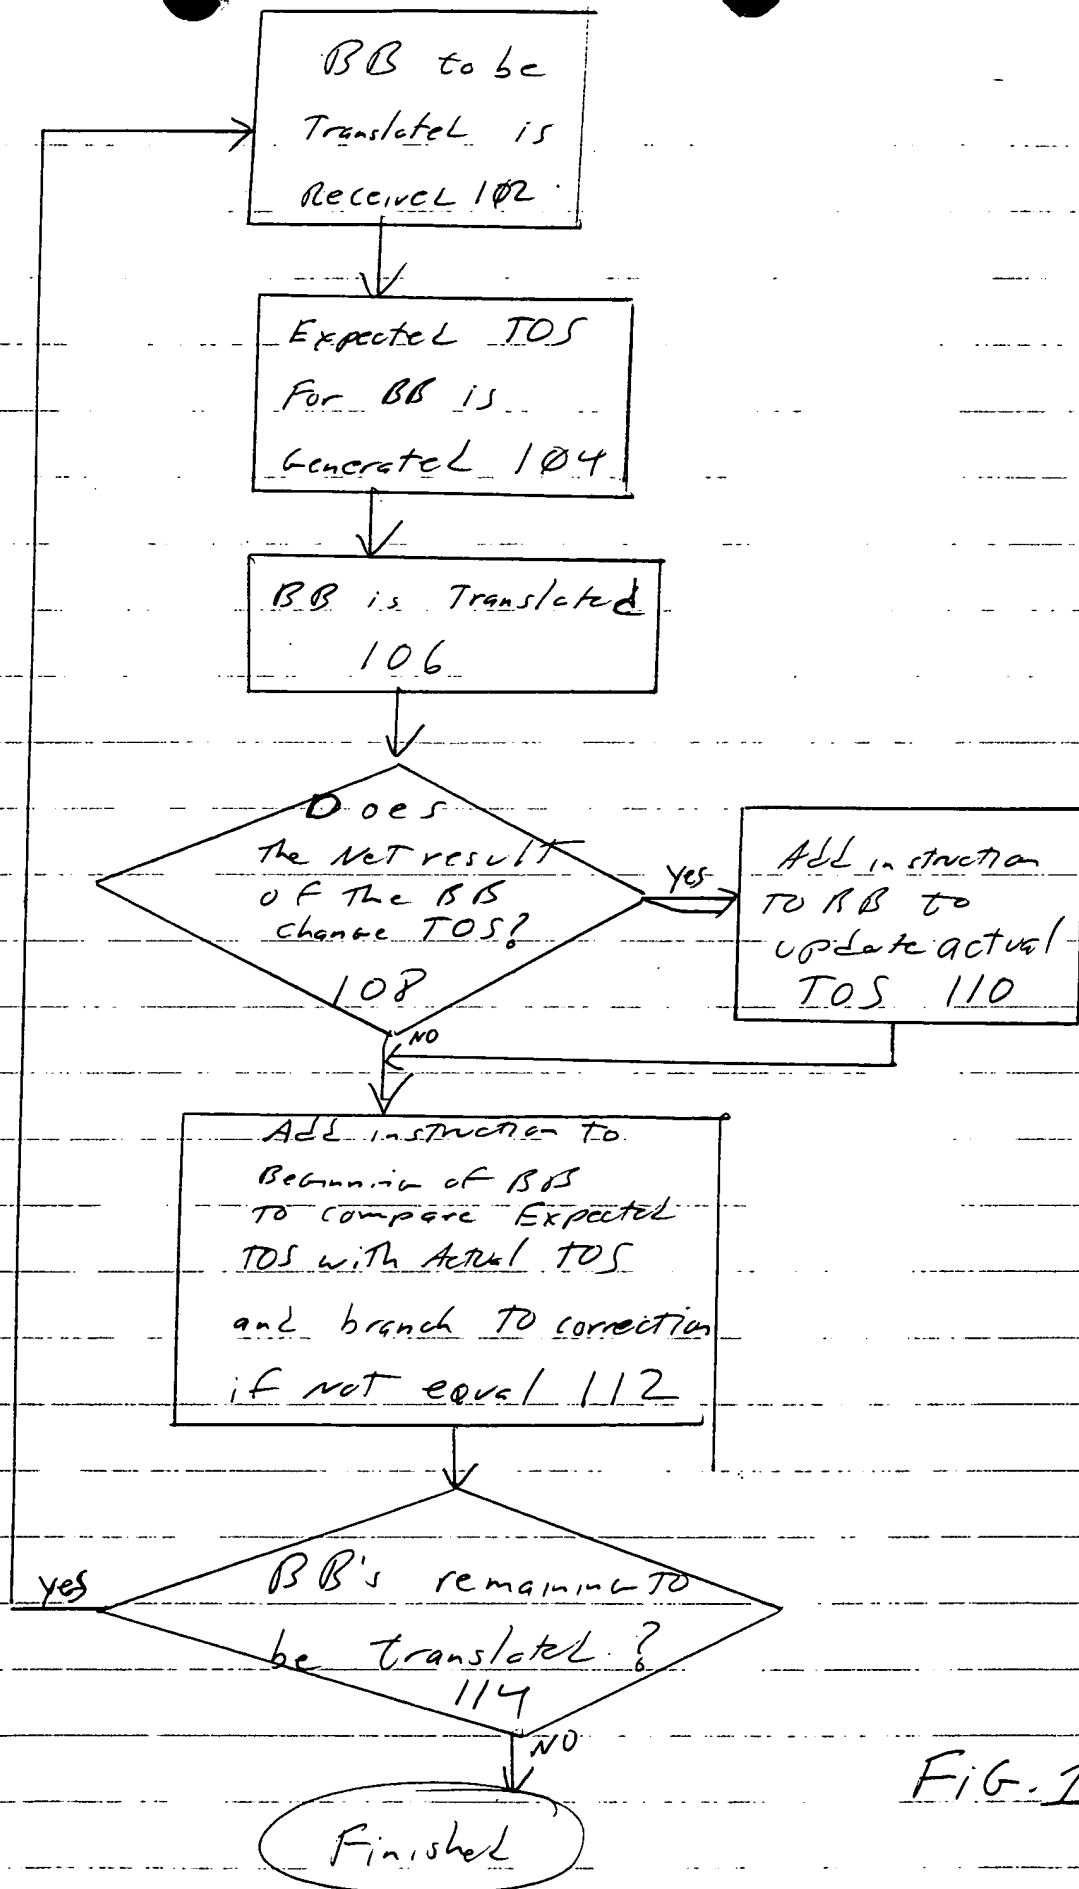 BB to be
Translated is
Received 102
Expected TOS
For BB is
Generated 104
BB is Translated
106
Does
The Net result
of The BB
change TOS?
108
yes
Add instruction
TO BB to
update actual
TOS 110
NO
Add instruction to
Beginning of BB
To compare Expected
TOS with Actual TOS
and branch TO correction
if NOT equal 112
BB's remaining TO
be translated ?
114
yes
NO
Finished
FiG. 1